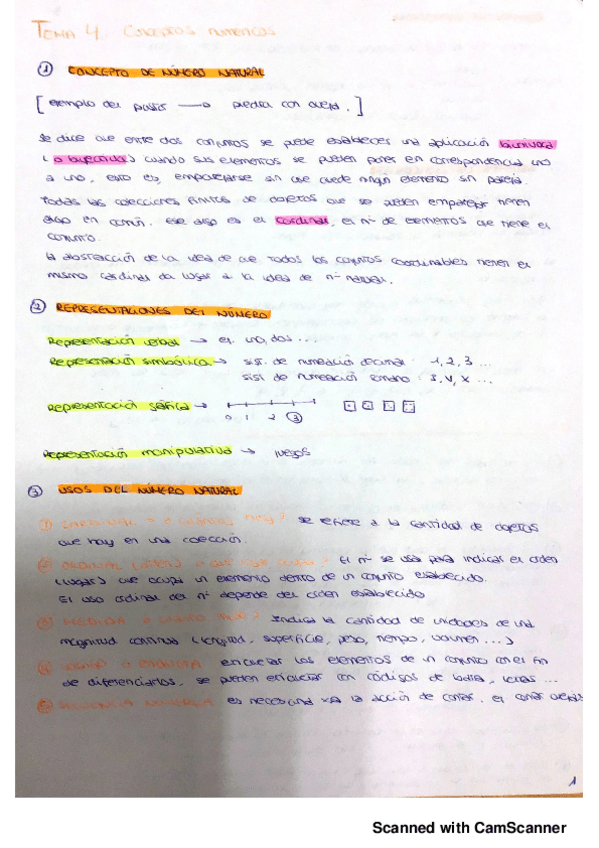 TEMA 4. CONCEPTOS NUMÉRICOS
① CONCEPTO DE NÚMERO NATURAL
[ejemplo del pastor → piedra con oveja.]
Se dice que entre dos conjuntos se puede establecer una aplicación biunívoca
(o biyectiva) cuando sus elementos se pueden poner en correspondencia uno
a uno, esto es, emparejarse sin que quede ningún elemento sin pareja.
Todas las colecciones finitas de objetos que se pueden emparejar tienen
algo en común. Ese algo es el cardinal, el nº de elementos que tiene el
conjunto.
La abstracción de la idea de que todos los conjuntos coordinables tienen el
mismo cardinal da lugar a la idea de nº natural.
② REPRESENTACIONES DEL NÚMERO
Representación verbal → ej. uno, dos ...
Representación simbólica → sist. de numeración decimal 1, 2, 3 ...
sist de numeración romano: I, V, X ...
Representación gráfica →
0 1 2 ③
Representación manipulativa → juegos
③ USOS DEL NÚMERO NATURAL
① CARDINAL ¿cuántos hay? se refiere a la cantidad de objetos
que hay en una colección.
② ORDINAL El nº se usa para indicar el orden
(lugar) que ocupa un elemento dentro de un conjunto establecido.
El uso ordinal del nº depende del orden establecido
③ MEDIDA Indica la cantidad de unidades de una
magnitud continua (longitud, superficie, peso, tiempo, volumen ...)
④ ETIQUETA etiquetar los elementos de un conjunto con el fin
de diferenciarlos, se pueden etiquetar con códigos de barra, letras ...
⑤ SECUENCIA NUMÉRICA es necesaria para la acción de contar. el contar
1
Scanned with CamScanner